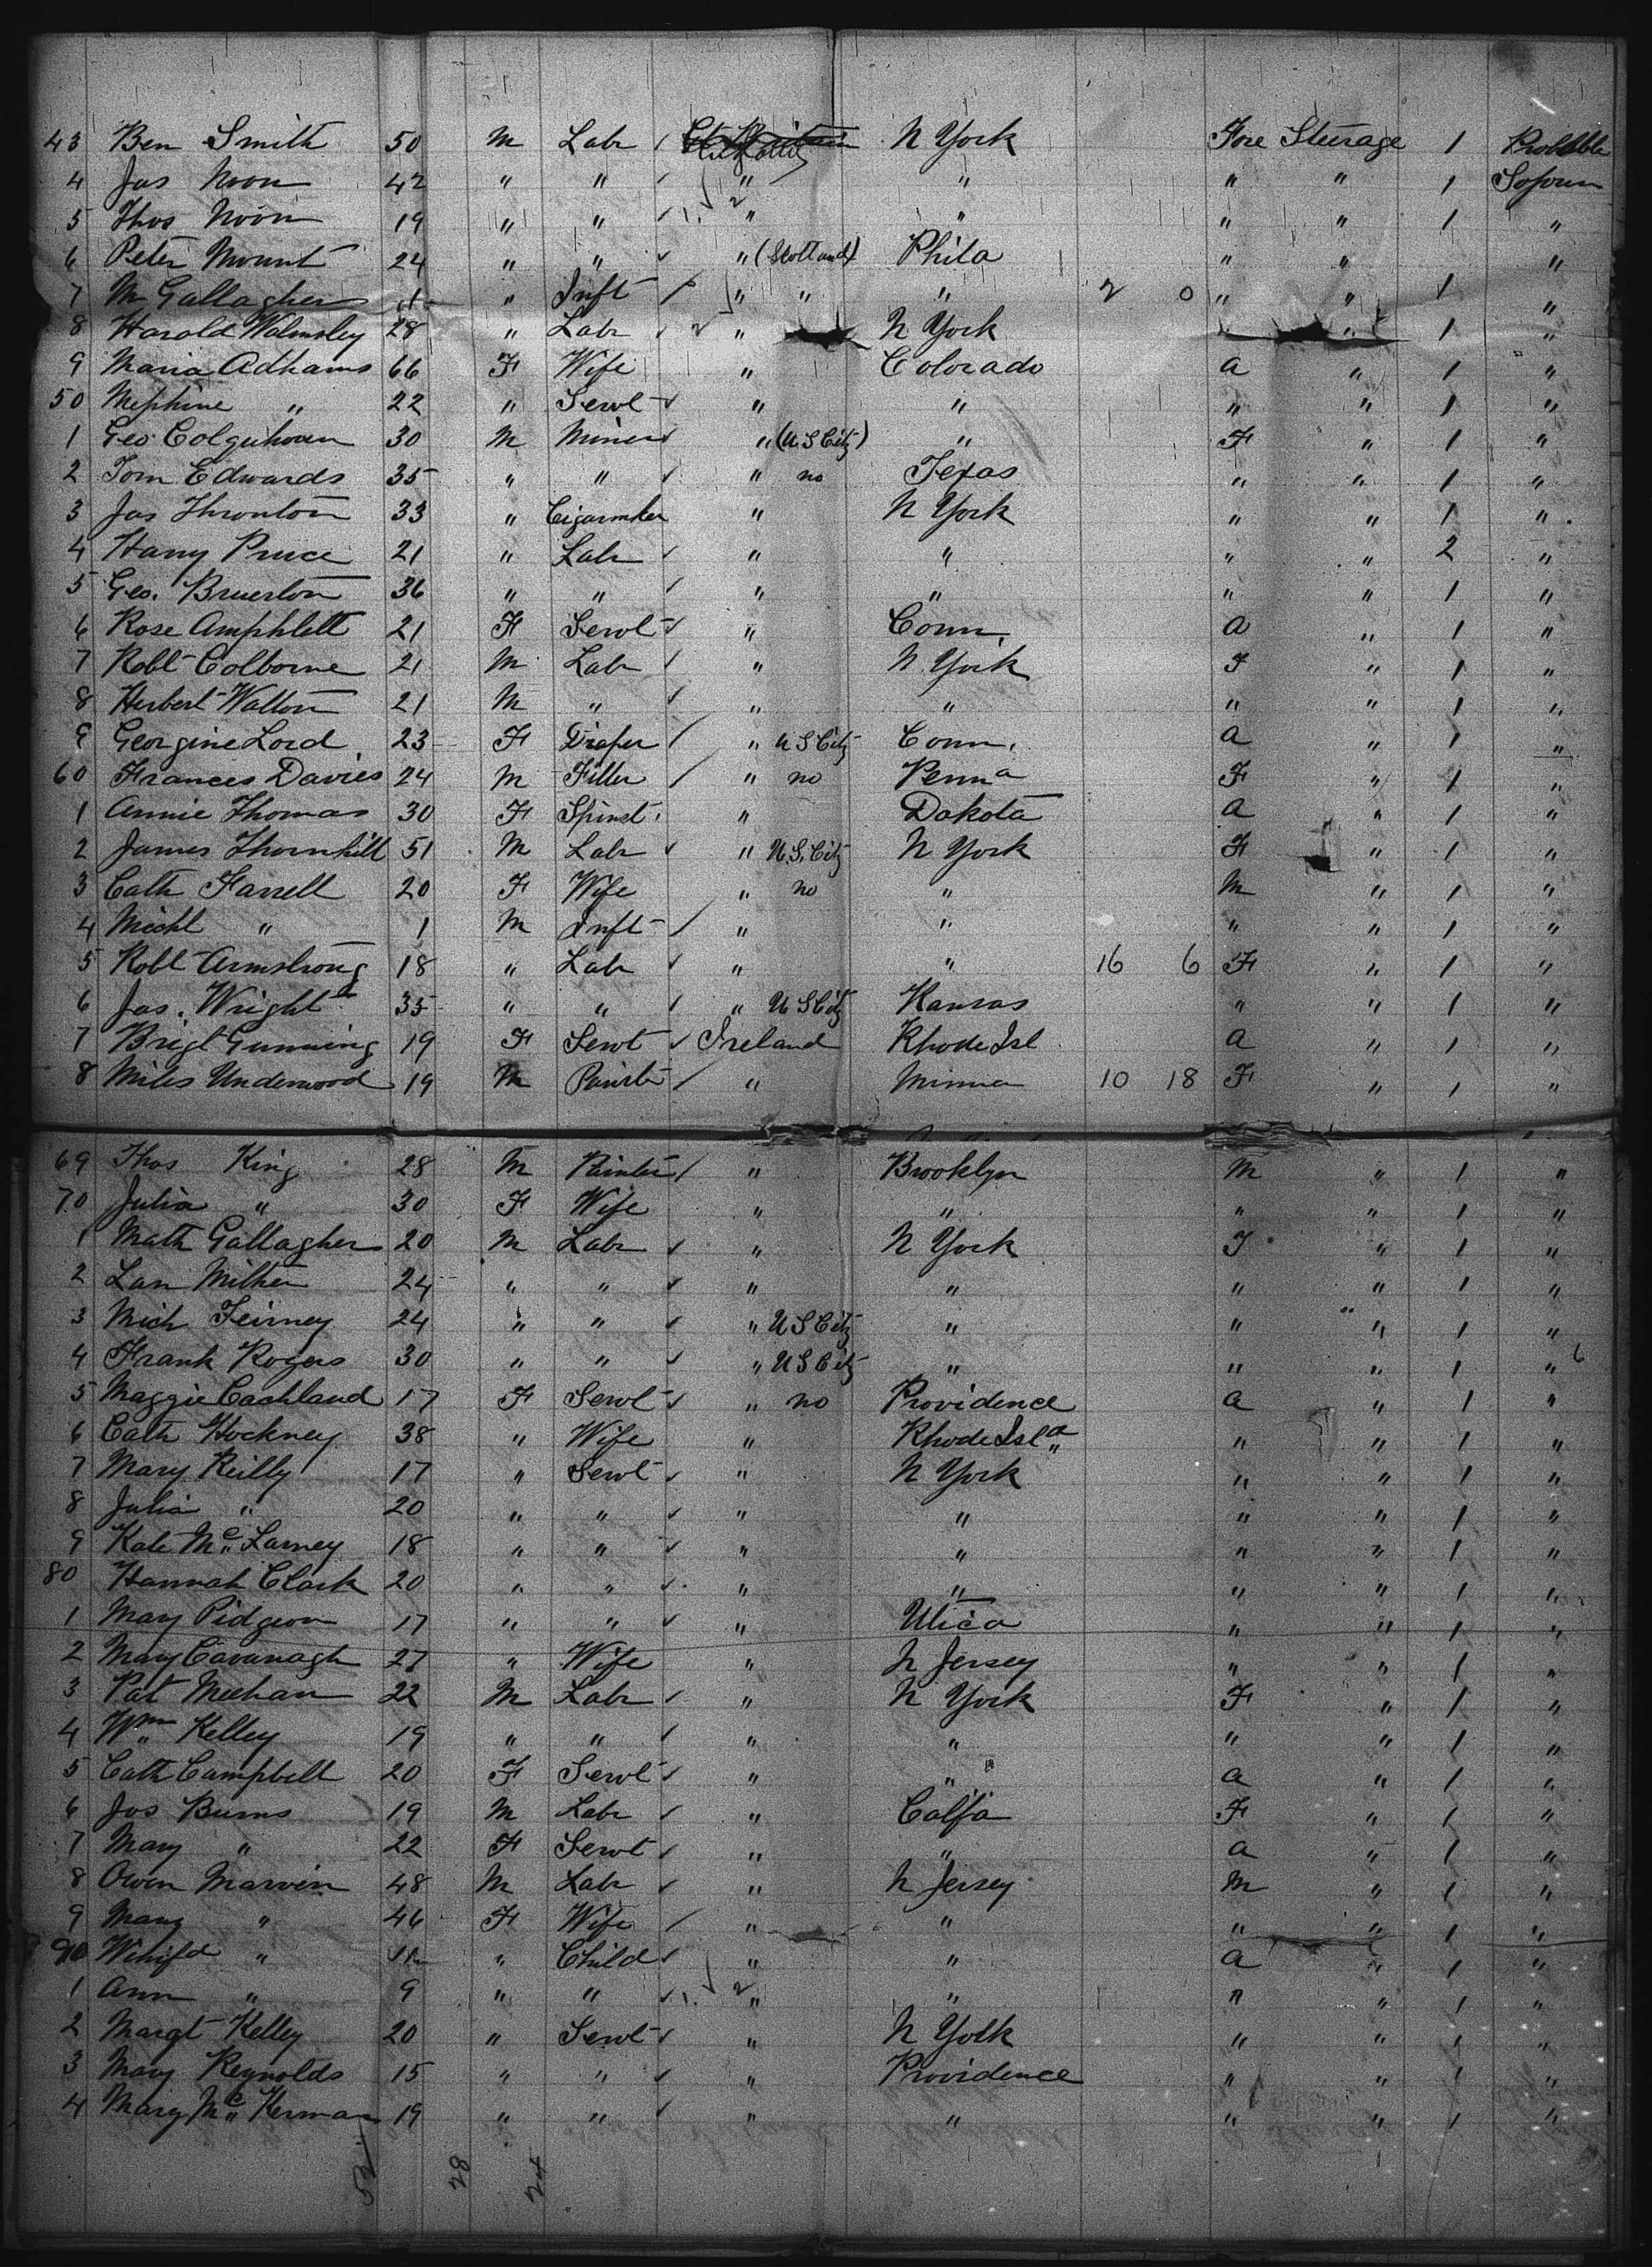 43 Ben Smith 50 M Labr N York Fore Steerage 1 Probable
4 Jas Noon 42 " " " " " " 1 Sojourn
5 Thos Noon 19 " " " " " " 1 "
6 Peter Mount 24 " " " (Scotland) Phila " " "
7 M Gallagher " Inft " " " 2 0 " " 1 "
8 Harold Walmsley 28 " Labr " N York " " 1 "
9 Maria Adhams 66 F Wife " Colorado a " 1 "
50 " 22 " Servt " " " " 1 "
1 Geo Colquhoun 30 M Miner " (U S Citz) " F " 1 "
2 Tom Edwards 35 " " " no Texas " " 1 "
3 Jas Thronton 33 " Cigarmker " N York " " 1 "
4 Harry Pruce 21 " Labr " " " " 2 "
5 Geo. Bruerton 36 " " " " " " 1 "
6 Rose Amphlett 21 F Servt " Conn. a " 1 "
7 Robt Colborne 21 M Labr " N York F " 1 "
8 Herbert Walton 21 M " " " " " 1 "
9 Georgine Lord 23 F Draper " U S Citz Conn. a " 1 "
60 Frances Davies 24 M Fitter " no Penna F " 1 "
1 Annie Thomas 30 F Spinst. " Dakota a " 1 "
2 James Thornhill 51 M Labr " U.S. Citz N York F " 1 "
3 Cath Farrell 20 F Wife " no " M " 1 "
4 Michl " 1 M Inft " " " " 1 "
5 Robt Armstrong 18 " Labr " " 16 6 F " 1 "
6 Jas. Wright 35 " " " U S Citz Kansas " " 1 "
7 Brigt Gunning 19 F Servt Ireland Rhode Isl a " 1 "
8 Miles Underwood 19 M Painter " Minna 10 18 F " 1 "
69 Thos King 28 M Painter " Brooklyn M " 1 "
70 Julia " 30 F Wife " " " " 1 "
1 Math Gallagher 20 M Labr " N York F " 1 "
2 Lan 24 " " " " " " 1 "
3 Mich Feirney 24 " " " U S Citz " " " 1 "
4 Frank Rogers 30 " " " U S Citz " " " 1 " 6
5 Maggie Cashland 17 F Servt " no Providence a " 1 "
6 Cath Hockney 38 " Wife " Rhode Isla " " 1 "
7 Mary Reilly 17 " Servt " N York " " 1 "
8 Julia " 20 " " " " " " 1 "
9 Kate Mc Larney 18 " " " " " " 1 "
80 Hannah Clark 20 " " " " " " 1 "
1 Mary Pidgeon 17 " " " Utica " " 1 "
2 Mary Cavanagh 27 " Wife " N Jersey " " 1 "
3 Pat Meehan 22 M Labr " N York F " 1 "
4 Wm Kelley 19 " " " " " " 1 "
5 Cath Campbell 20 F Servt " " a " 1 "
6 Jos Burns 19 M Labr " Calfa F " 1 "
7 Mary " 22 F Servt " " a " 1 "
8 Owen Marvin 48 M Labr " N Jersey M " 1 "
9 Mary " 46 F Wife " " " " 1 "
90 Winifd " 11 " Child " " a " 1 "
1 Ann " 9 " " " " " " 1 "
2 Margt Kelley 20 " Servt " N York " " 1 "
3 Mary Reynolds 15 " " " Providence " " 1 "
4 Mary Mc Kerman 19 " " " " " " 1 "
28 24